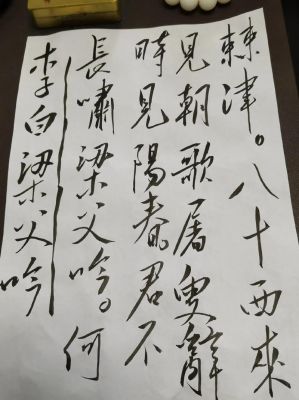 李白梁父吟
長嘯梁父吟。何
時見陽春。君不
見朝歌屠叟辭
棘津。八十西來